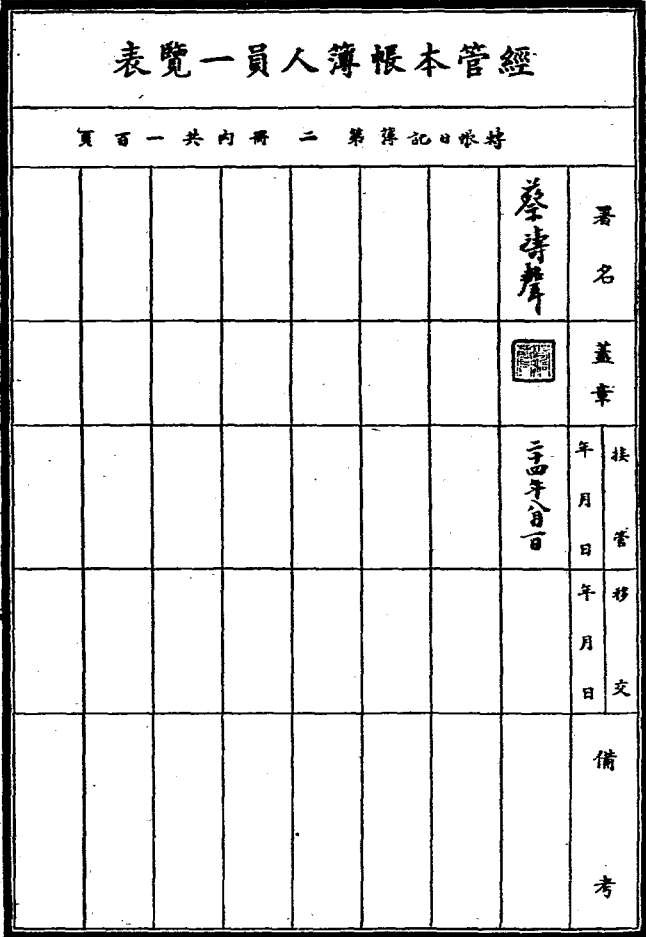 經管本帳簿人員一覽表
轉帳日記簿第二冊內共一百頁
署名
蔡濤聲
蓋章
接管
年月日
二十四年八月一日
移交
年月日
備考